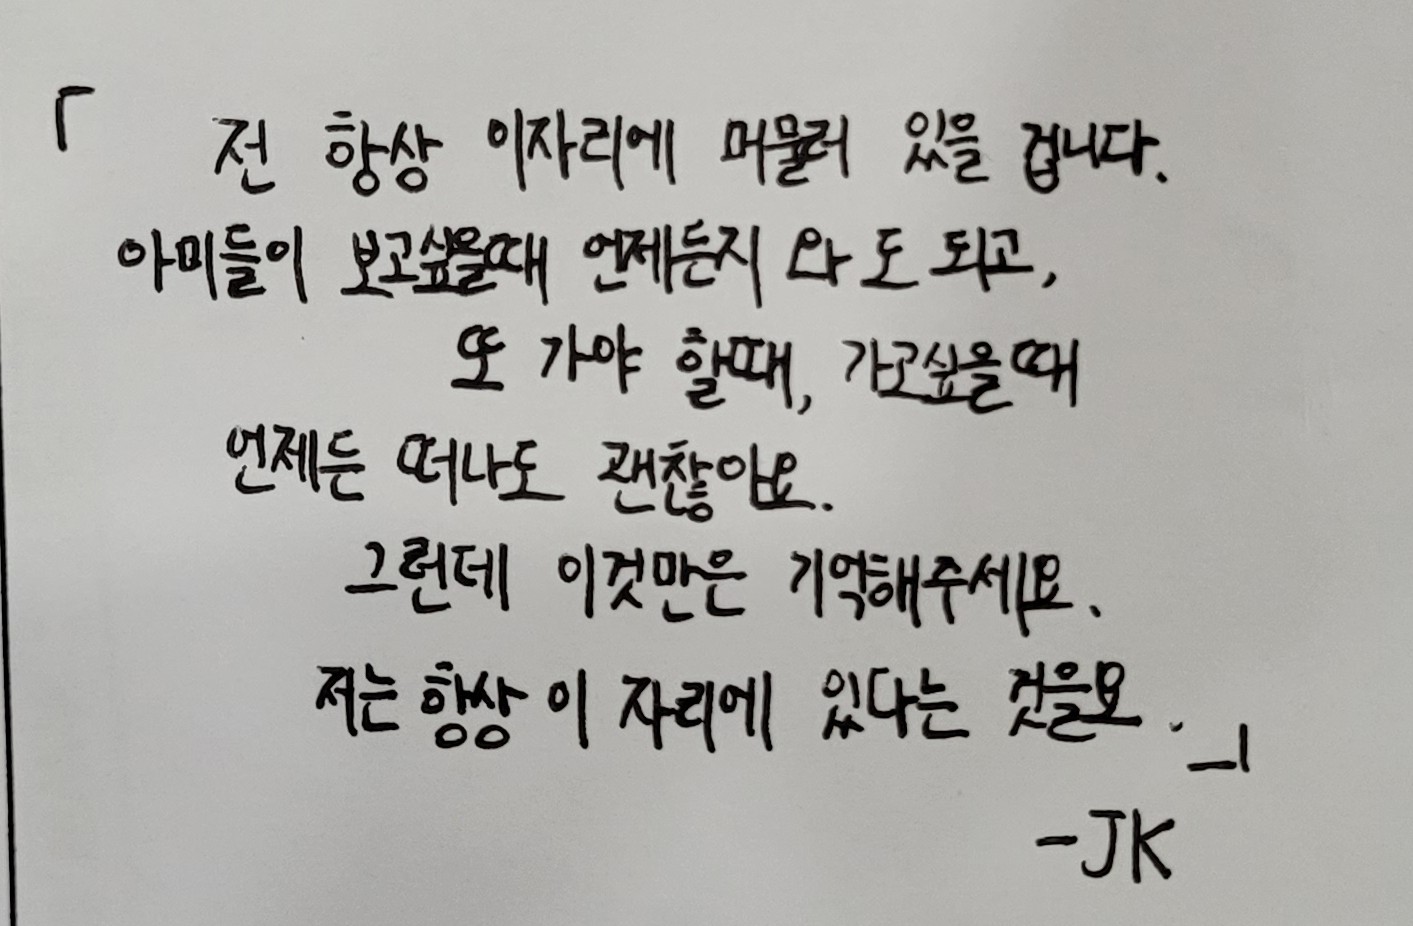 「 전 항상 이자리에 머물러 있을 겁니다.
아미들이 보고싶을때 언제든지 와도 되고,
또 가야 할때, 가고싶을때
언제든 떠나도 괜찮아요.
그런데 이것만은 기억해주세요.
저는 항상 이 자리에 있다는 것을요. 」
-JK